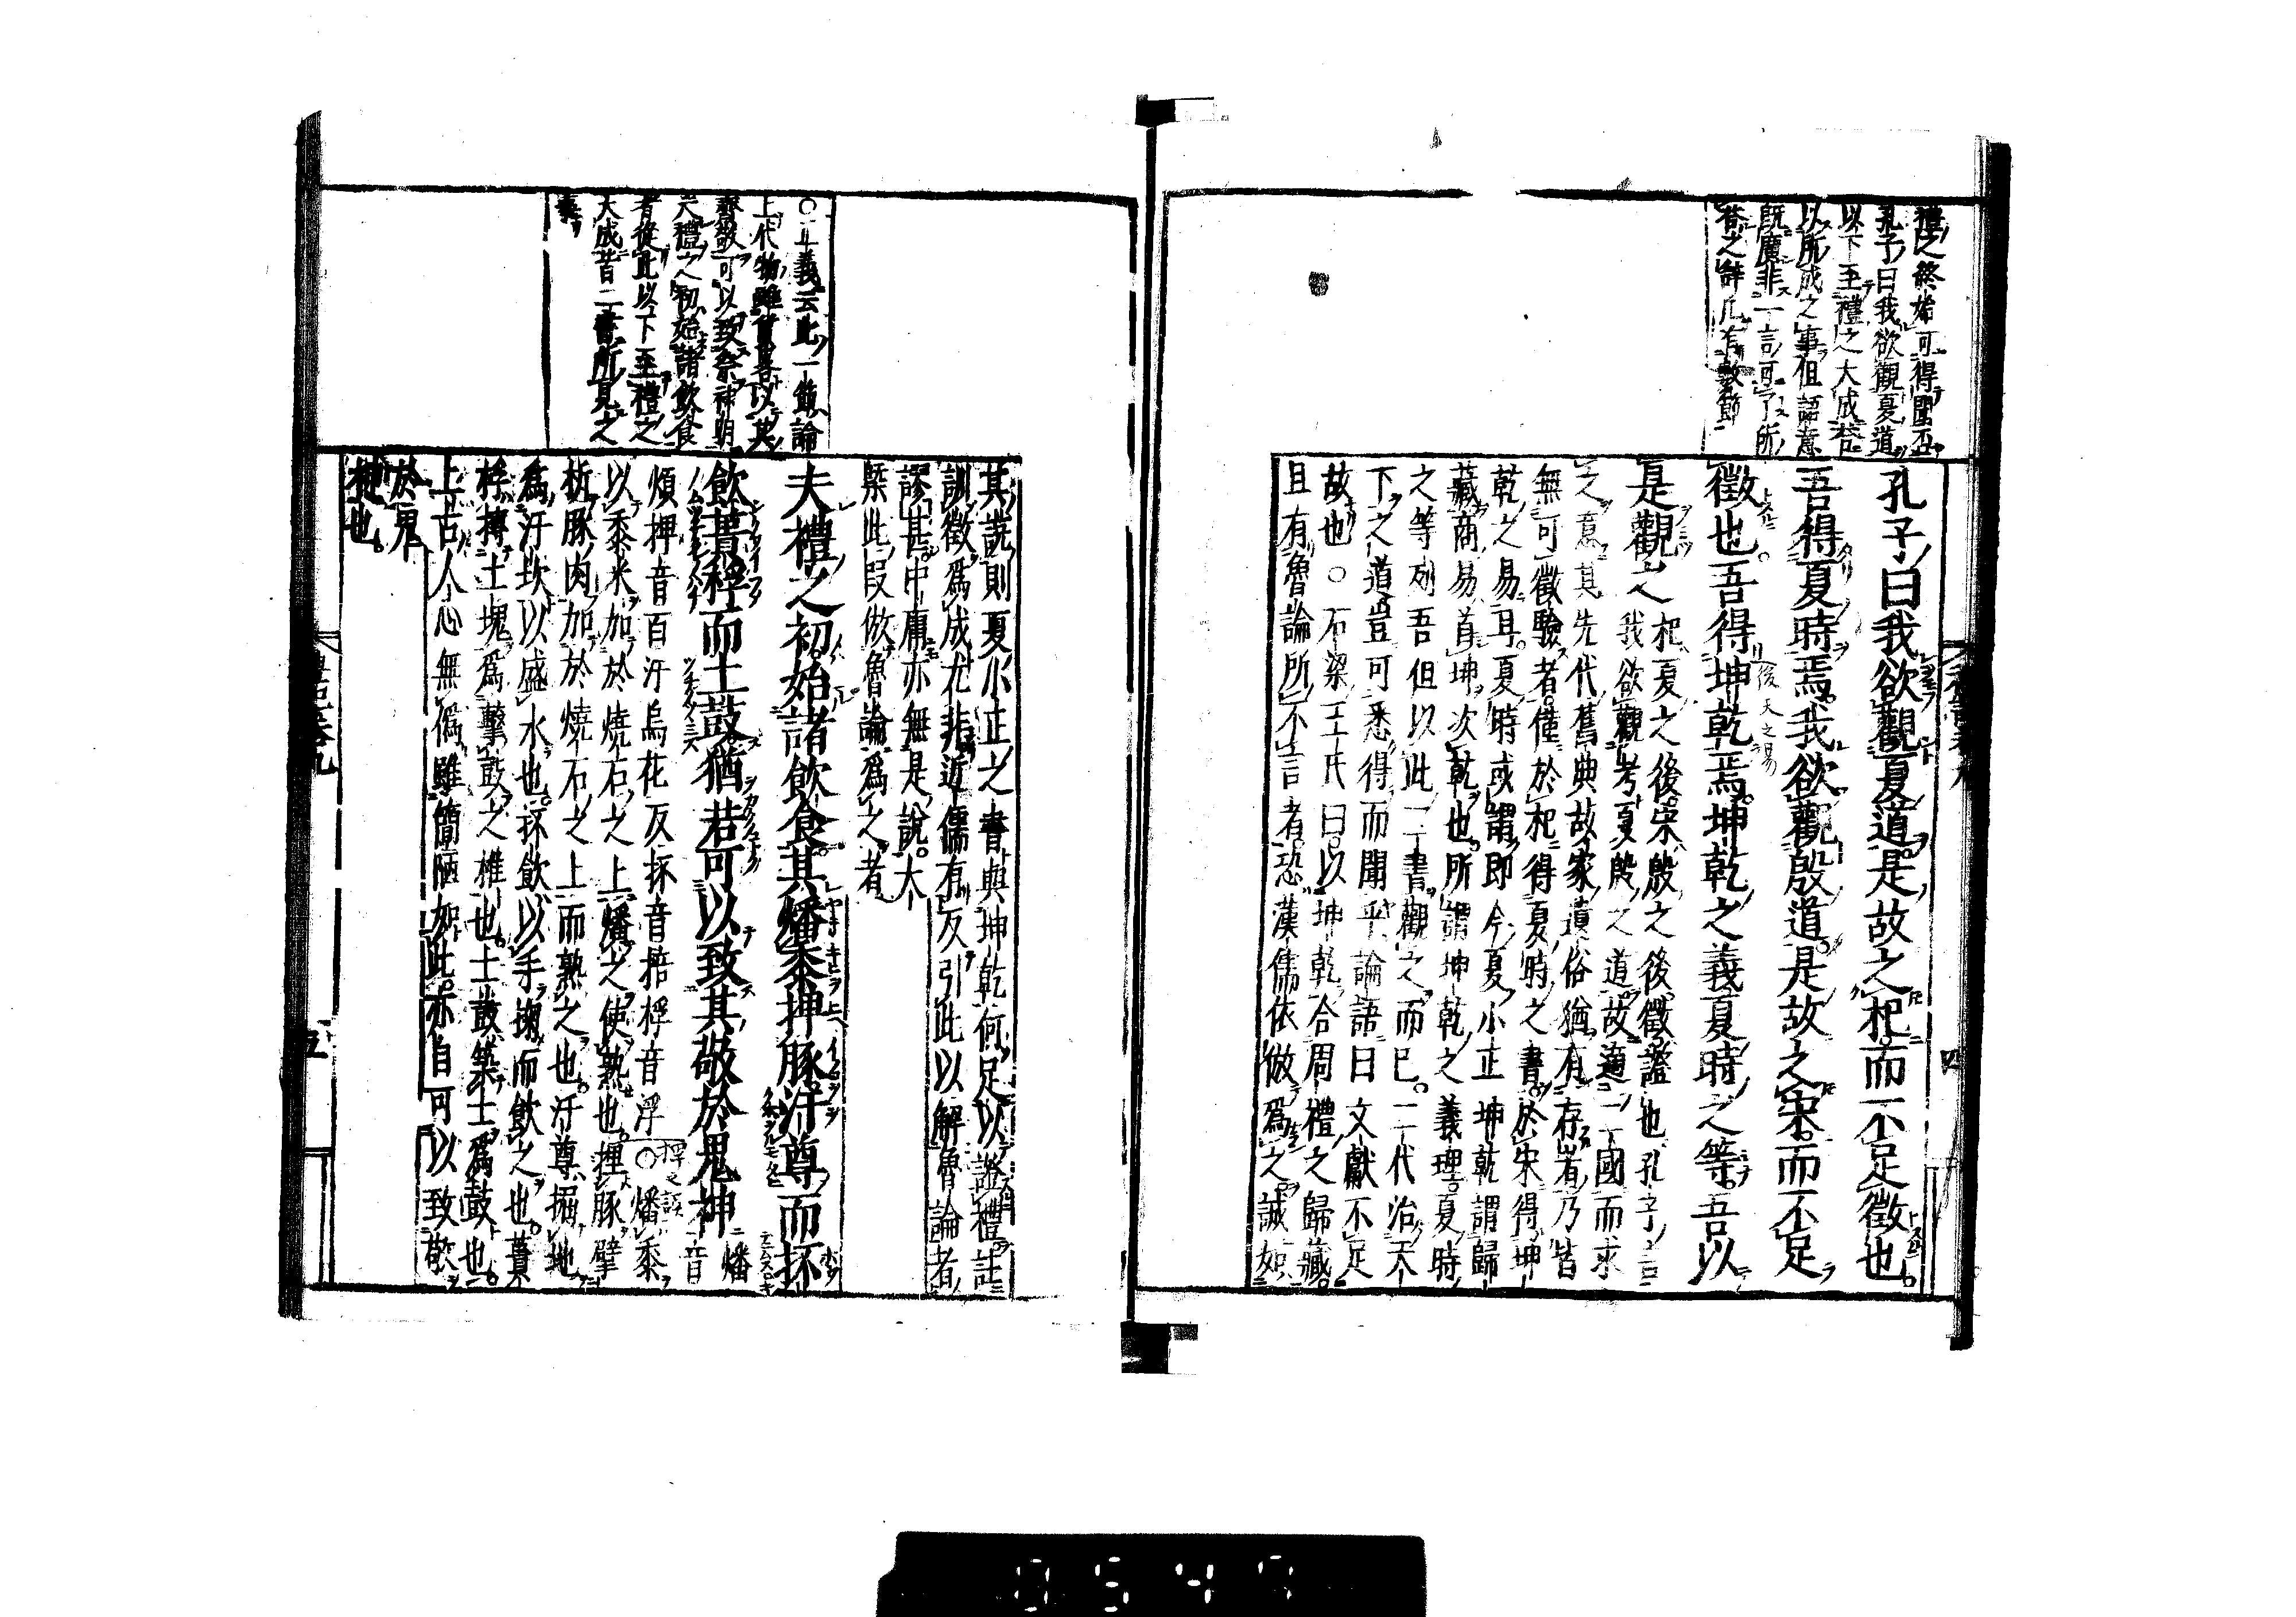 禮之終始可得聞否
孔子曰我欲觀夏道
以下至禮之大成荅
以所成之事但語意
既廣非一言可了所
荅之辭凡有數節
孔子曰我欲觀夏道是故之杞而不足徵也
吾得夏時焉我欲觀殷道是故之宋而不足
徵也。吾得坤乾焉坤乾之義夏時之等吾以
後天之易
是觀之
杞夏之後宋殷之後徵證也孔子言
我欲觀考夏殷之道故適二國而求
之意其先代舊典故家遺俗猶有存者乃皆
無可徵驗者僅於杞得夏時之書於宋得坤
乾之易耳夏時或謂即今夏小正坤乾謂歸
藏商易首坤次乾也所謂坤乾之義理夏時
之等列吾但以此二書觀之而已二代治天
下之道豈可悉得而聞乎論語曰文獻不足
故也○石梁王氏曰以坤乾合周禮之歸藏
且有魯論所不言者恐漢儒依倣爲之誠如
四
其說則夏小正之書與坤乾何足以證禮註
訓徵爲成尤非近儒有反引此以解魯論者
謬甚中庸亦無是說大
槩此段倣魯論爲之者
○正義云此一節論
上代物雖質畧以其
齊敬可以致祭神明
夫禮之初始諸飲食
者從此以下至禮之
大成皆二書所見之
事
夫禮之初始諸飲食其燔黍捭豚汙尊而抔
飲蕢桴而土鼓猶若可以致其敬於鬼神
燔音
煩捭音百汙烏花反抔音掊桴音浮○燔黍
以黍米加於燒石之上燔之使熟也捭豚擘
析豚肉加於燒石之上而熟之也汙尊掘地
爲汙坎以盛水也抔飲以手掬而飲之也蕢
桴摶土塊爲擊鼓之椎也土鼓築土爲鼓也
上古人心無僞雖簡陋如此亦自可以致敬
於鬼
神也
禮記卷九
五